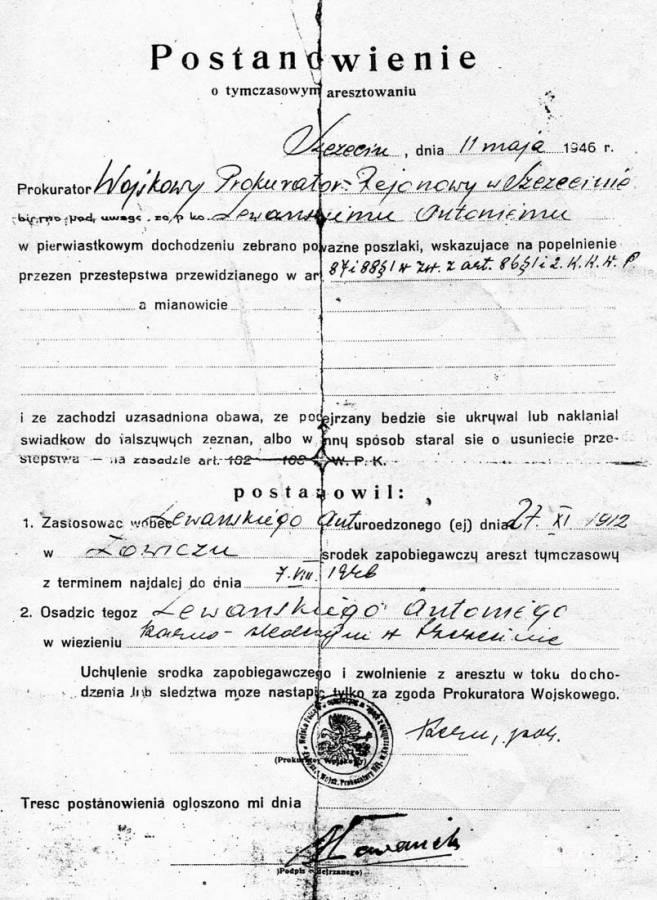 Postanowienie
o tymczasowym aresztowaniu
Szczecin, dnia 11 maja 1946 r.
Prokurator Wojskowy Prokurator Rejonowy w Szczecinie
uwagę Lewańskiemu Antoniemu
w pierwiastkowym dochodzeniu zebrano poważne poszlaki, wskazujace na popelnienie
przezen przestepstwa przewidzianego w art 87 i 88§1 w zw. z art. 86§1 i 2. K.K.W.P.
a mianowicie
i ze zachodzi uzasadniona obawa, ze podejrzany bedzie sie ukrywal lub naklanial
swiadkow do falszywych zeznan, albo w inny spósob staral sie o usuniecie prze-
stepstwa – na zasadzie art. 102 W. P. K.
postanowil:
1. Zastosowac wobec Lewańskiego Ant uroedzonego (ej) dnia 27. XI 1912
w Łowiczu srodek zapobiegawczy areszt tymczasowy
z terminem najdalej do dnia 7. VIII. 1946
2. Osadzic tegoz Lewańskiego Antoniego
w wiezieniu karno-śledczym w Szczecinie
Uchylenie srodka zapobiegawczego i zwolnienie z aresztu w toku docho-
dzenia lub sledztwa moze nastapic tylko za zgoda Prokuratora Wojskowego.
(Prokurator Wojskowy)
Tresc postánowienia ogloszono mi dnia
(Podpis podejrzanego)